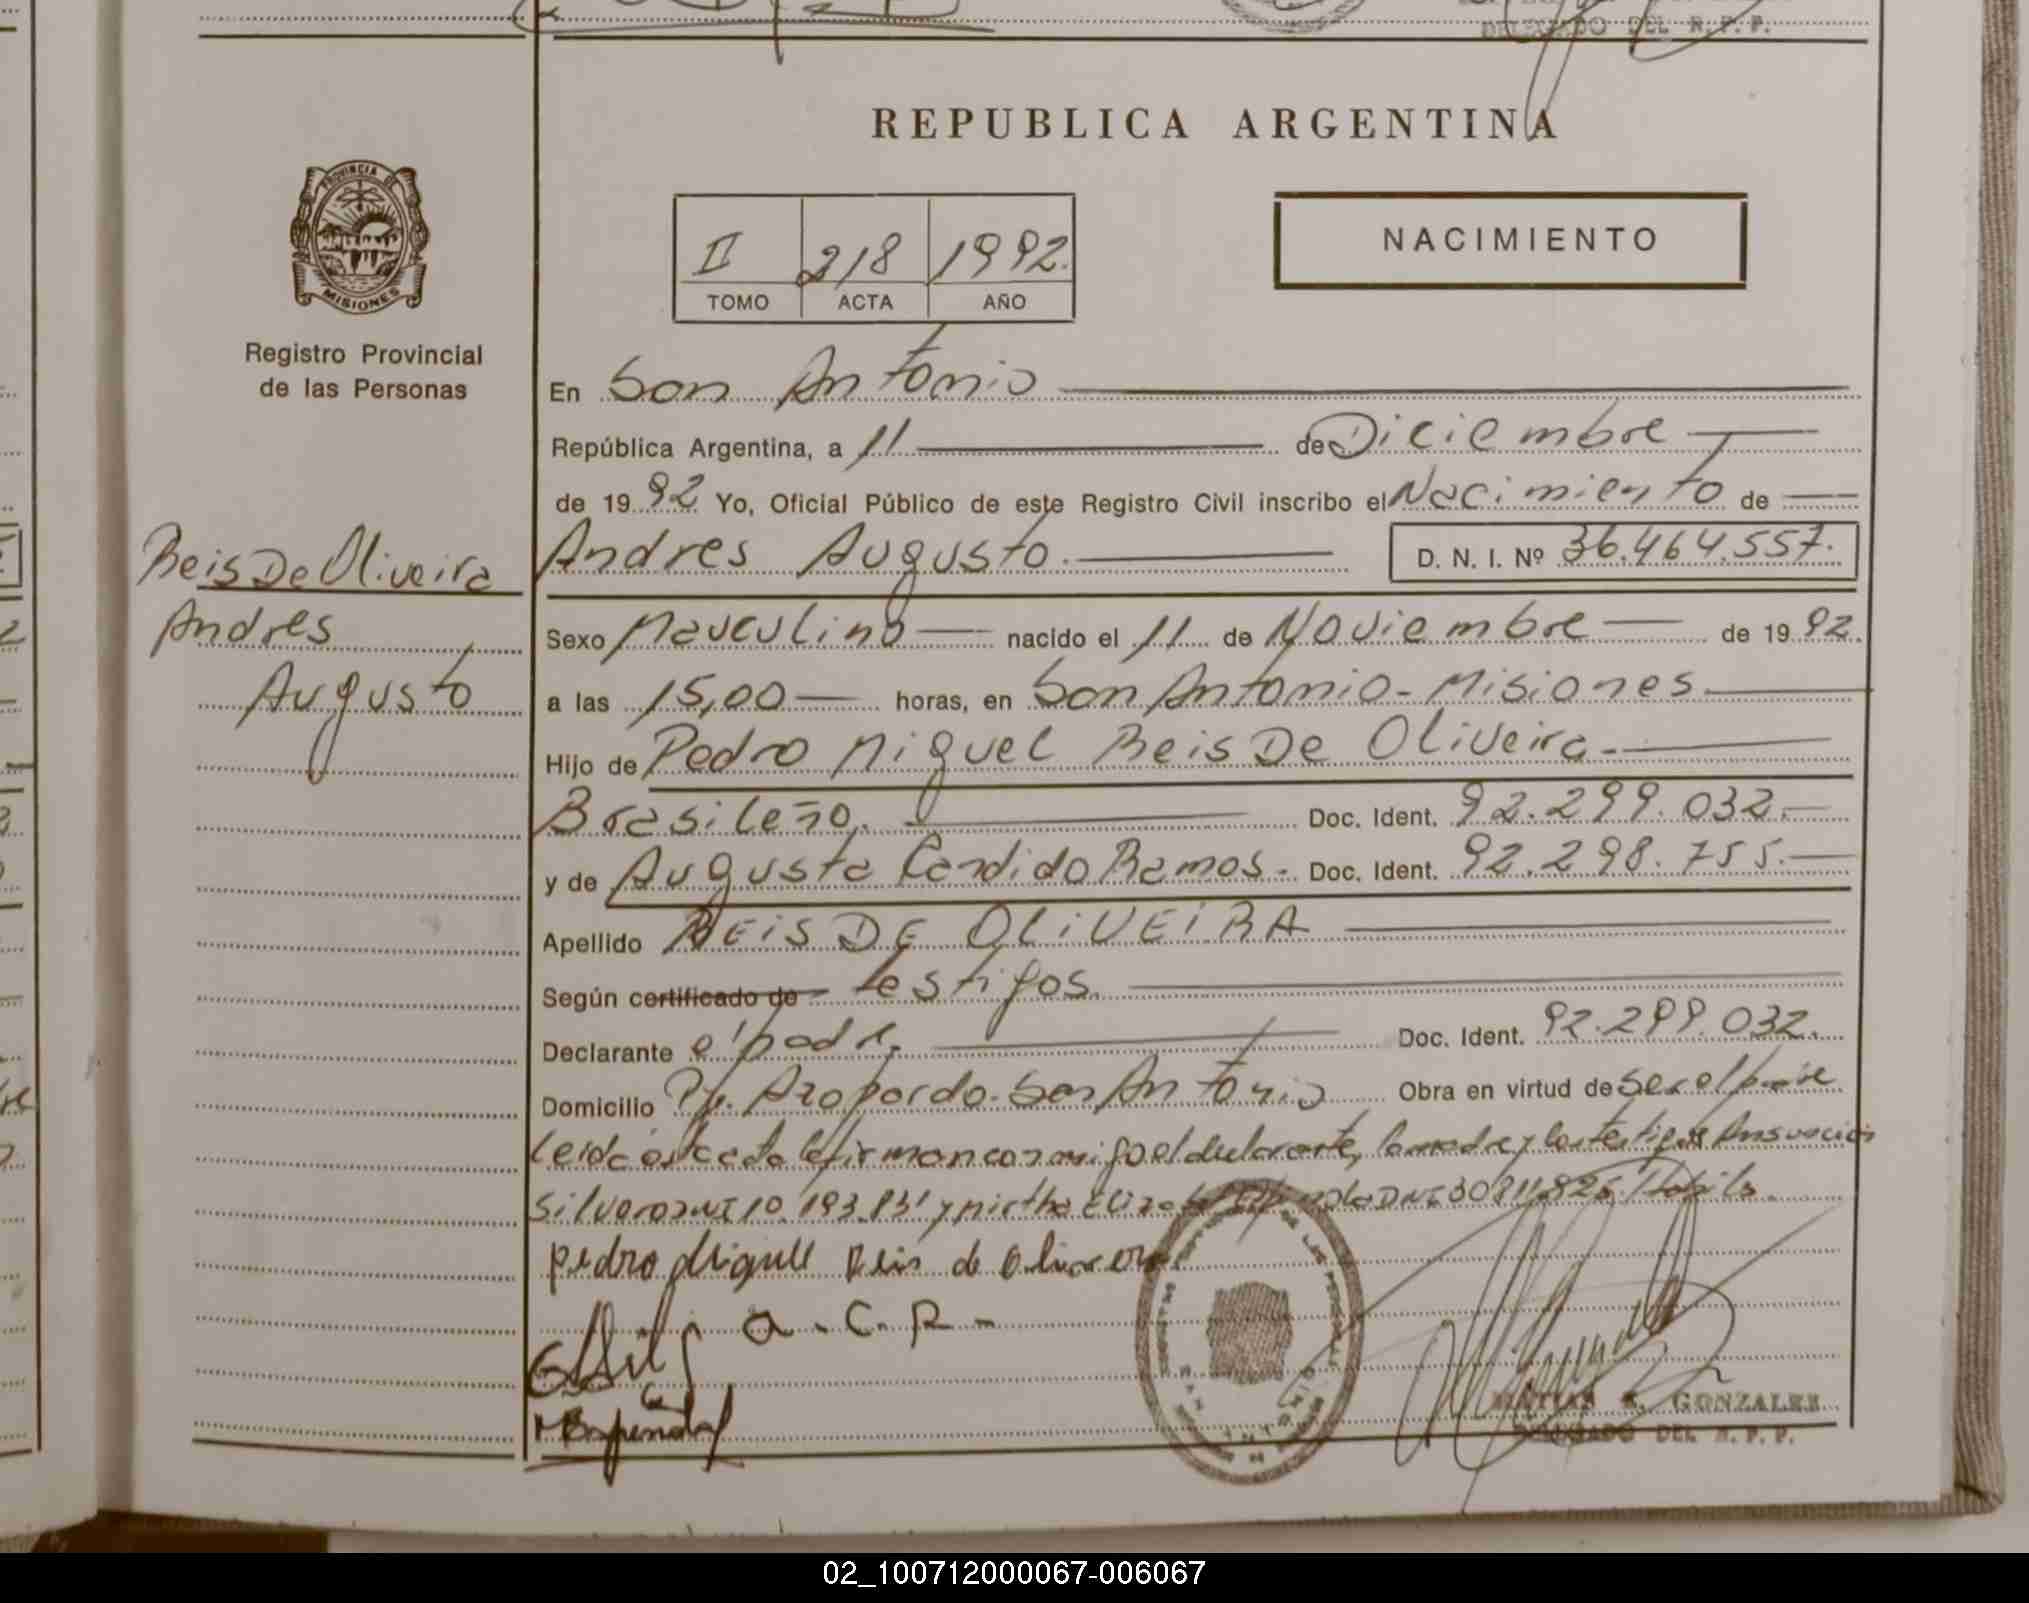 DELEGADO DEL R. P. P.
REPUBLICA ARGENTINA
PROVINCIA DE
MISIONES
Registro Provincial
de las Personas
II 218 1992.
TOMO ACTA AÑO
NACIMIENTO
En San Antonio
República Argentina, a 11 de Diciembre
de 19 92 Yo, Oficial Público de este Registro Civil inscribo el Nacimiento de
Reis De Oliveira
Andres
Augusto
Andres Augusto. D. N. I. Nº 36.464.557.
Sexo Masculino nacido el 11 de Noviembre de 19 92.
a las 15,00 horas, en San Antonio - Misiones
Hijo de Pedro Miguel Reis De Oliveira.
Brasileño. Doc. Ident. 92.299.032.
y de Augusta Candido Ramos. Doc. Ident. 92.298.755.
Apellido REIS DE OLIVEIRA
Según certificado de testigos.
Declarante el padre. Doc. Ident. 92.299.032.
Domicilio Pje. Azopardo. San Antonio Obra en virtud de ser el padre
Leida esta acta la firman conmigo el declarante, la madre y los testigos
y Mirtha
Pedro Miguel Reis de Oliveira
a. C. R.
SAN ANTONIO
MATIAS GONZALEZ
DELEGADO DEL R. P. P.
02_100712000067-006067